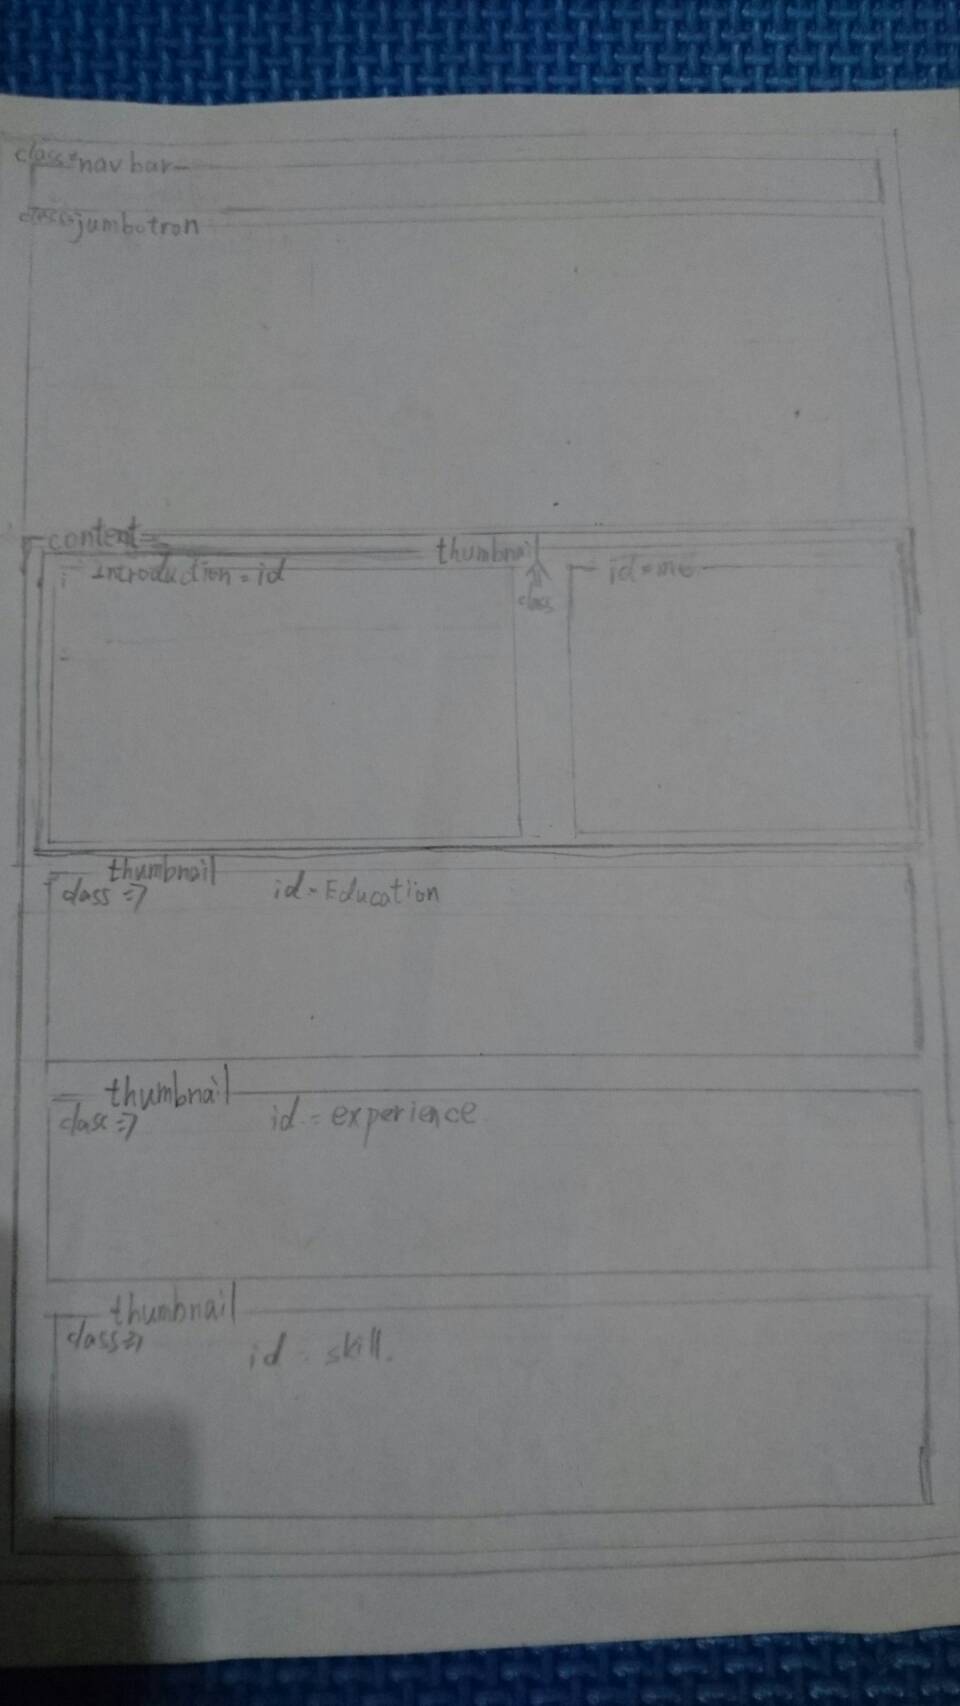 class=navbar
class=jumbotron
content=
thumbnail
Introduction = id
class
id=me
thumbnail
class=>
id=Education
thumbnail
class=>
id=experience
thumbnail
class=>
id=skill.